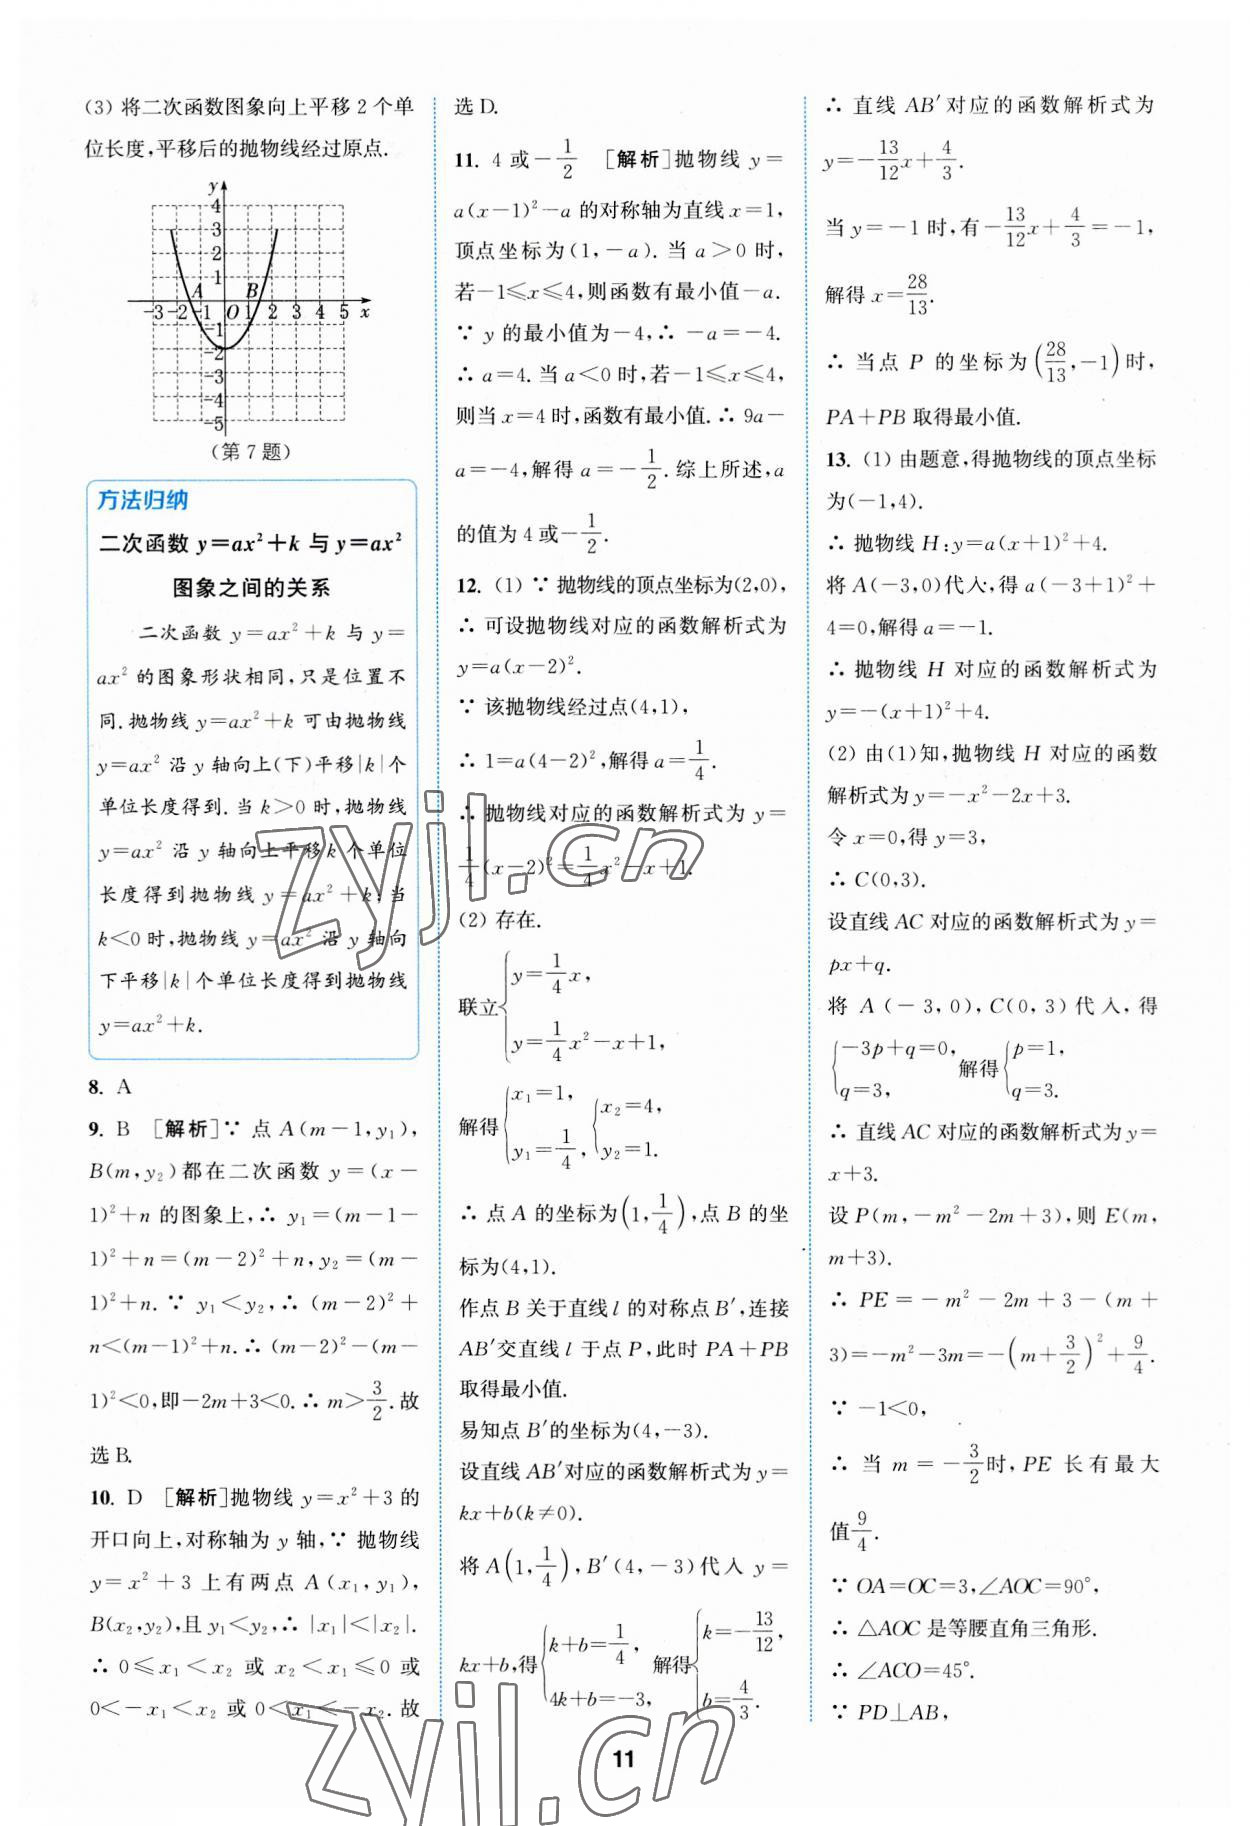 (3) 将二次函数图象向上平移2个单
位长度,平移后的抛物线经过原点.
y
4
3
2
1
A B
-3 -2 -1 O 1 2 3 4 5 x
-1
-2
-3
-4
-5
(第7题)
方法归纳
二次函数 y=ax²+k 与 y=ax²
图象之间的关系
二次函数 y=ax²+k 与 y=
ax² 的图象形状相同,只是位置不
同.抛物线 y=ax²+k 可由抛物线
y=ax² 沿 y 轴向上(下)平移|k|个
单位长度得到.当 k>0 时,抛物线
y=ax² 沿 y 轴向上平移 k 个单位
长度得到抛物线 y=ax²+k;当
k<0 时,抛物线 y=ax² 沿 y 轴向
下平移|k|个单位长度得到抛物线
y=ax²+k.
8. A
9. B [解析]∵ 点 A(m-1,y₁),
B(m,y₂)都在二次函数 y=(x-
1)²+n 的图象上,∴ y₁=(m-1-
1)²+n=(m-2)²+n,y₂=(m-
1)²+n.∵ y₁<y₂,∴ (m-2)²+
n<(m-1)²+n.∴ (m-2)²-(m-
1)²<0,即-2m+3<0.∴ m>3/2.故
选 B.
10. D [解析]抛物线 y=x²+3 的
开口向上,对称轴为 y 轴,∵ 抛物线
y=x²+3 上有两点 A(x₁,y₁),
B(x₂,y₂),且 y₁<y₂,∴ |x₁|<|x₂|.
∴ 0≤x₁<x₂ 或 x₂<x₁≤0 或
0<-x₁<x₂ 或 0<x₁<-x₂.故
选 D.
11. 4 或-1/2 [解析]抛物线 y=
a(x-1)²-a 的对称轴为直线 x=1,
顶点坐标为(1,-a).当 a>0 时,
若-1≤x≤4,则函数有最小值-a.
∵ y 的最小值为-4,∴ -a=-4.
∴ a=4.当 a<0 时,若-1≤x≤4,
则当 x=4 时,函数有最小值.∴ 9a-
a=-4,解得 a=-1/2.综上所述,a
的值为 4 或-1/2.
12. (1) ∵ 抛物线的顶点坐标为(2,0),
∴ 可设抛物线对应的函数解析式为
y=a(x-2)².
∵ 该抛物线经过点(4,1),
∴ 1=a(4-2)²,解得 a=1/4.
∴ 抛物线对应的函数解析式为 y=
1/4(x-2)²=1/4x²-x+1.
(2) 存在.
联立{y=1/4x,
y=1/4x²-x+1,
解得{x₁=1, {x₂=4,
y₁=1/4, y₂=1.
∴ 点 A 的坐标为(1,1/4),点 B 的坐
标为(4,1).
作点 B 关于直线 l 的对称点 B′,连接
AB′交直线 l 于点 P,此时 PA+PB
取得最小值.
易知点 B′的坐标为(4,-3).
设直线 AB′对应的函数解析式为 y=
kx+b(k≠0).
将 A(1,1/4),B′(4,-3)代入 y=
kx+b,得{k+b=1/4, 4k+b=-3, 解得{k=-13/12, b=4/3.
∴ 直线 AB′对应的函数解析式为
y=-13/12x+4/3.
当 y=-1 时,有-13/12x+4/3=-1,
解得 x=28/13.
∴ 当点 P 的坐标为(28/13,-1)时,
PA+PB 取得最小值.
13. (1) 由题意,得抛物线的顶点坐标
为(-1,4).
∴ 抛物线 H:y=a(x+1)²+4.
将 A(-3,0)代入,得 a(-3+1)²+
4=0,解得 a=-1.
∴ 抛物线 H 对应的函数解析式为
y=-(x+1)²+4.
(2) 由(1)知,抛物线 H 对应的函数
解析式为 y=-x²-2x+3.
令 x=0,得 y=3,
∴ C(0,3).
设直线 AC 对应的函数解析式为 y=
px+q.
将 A(-3,0),C(0,3)代入,得
{-3p+q=0, q=3, 解得{p=1, q=3.
∴ 直线 AC 对应的函数解析式为 y=
x+3.
设 P(m,-m²-2m+3),则 E(m,
m+3).
∴ PE=-m²-2m+3-(m+
3)=-m²-3m=-(m+3/2)²+9/4.
∵ -1<0,
∴ 当 m=-3/2时,PE 长有最大
值9/4.
∵ OA=OC=3,∠AOC=90°,
∴ △AOC 是等腰直角三角形.
∴ ∠ACO=45°.
∵ PD⊥AB,
11
zyjl.cn
zyjl.cn